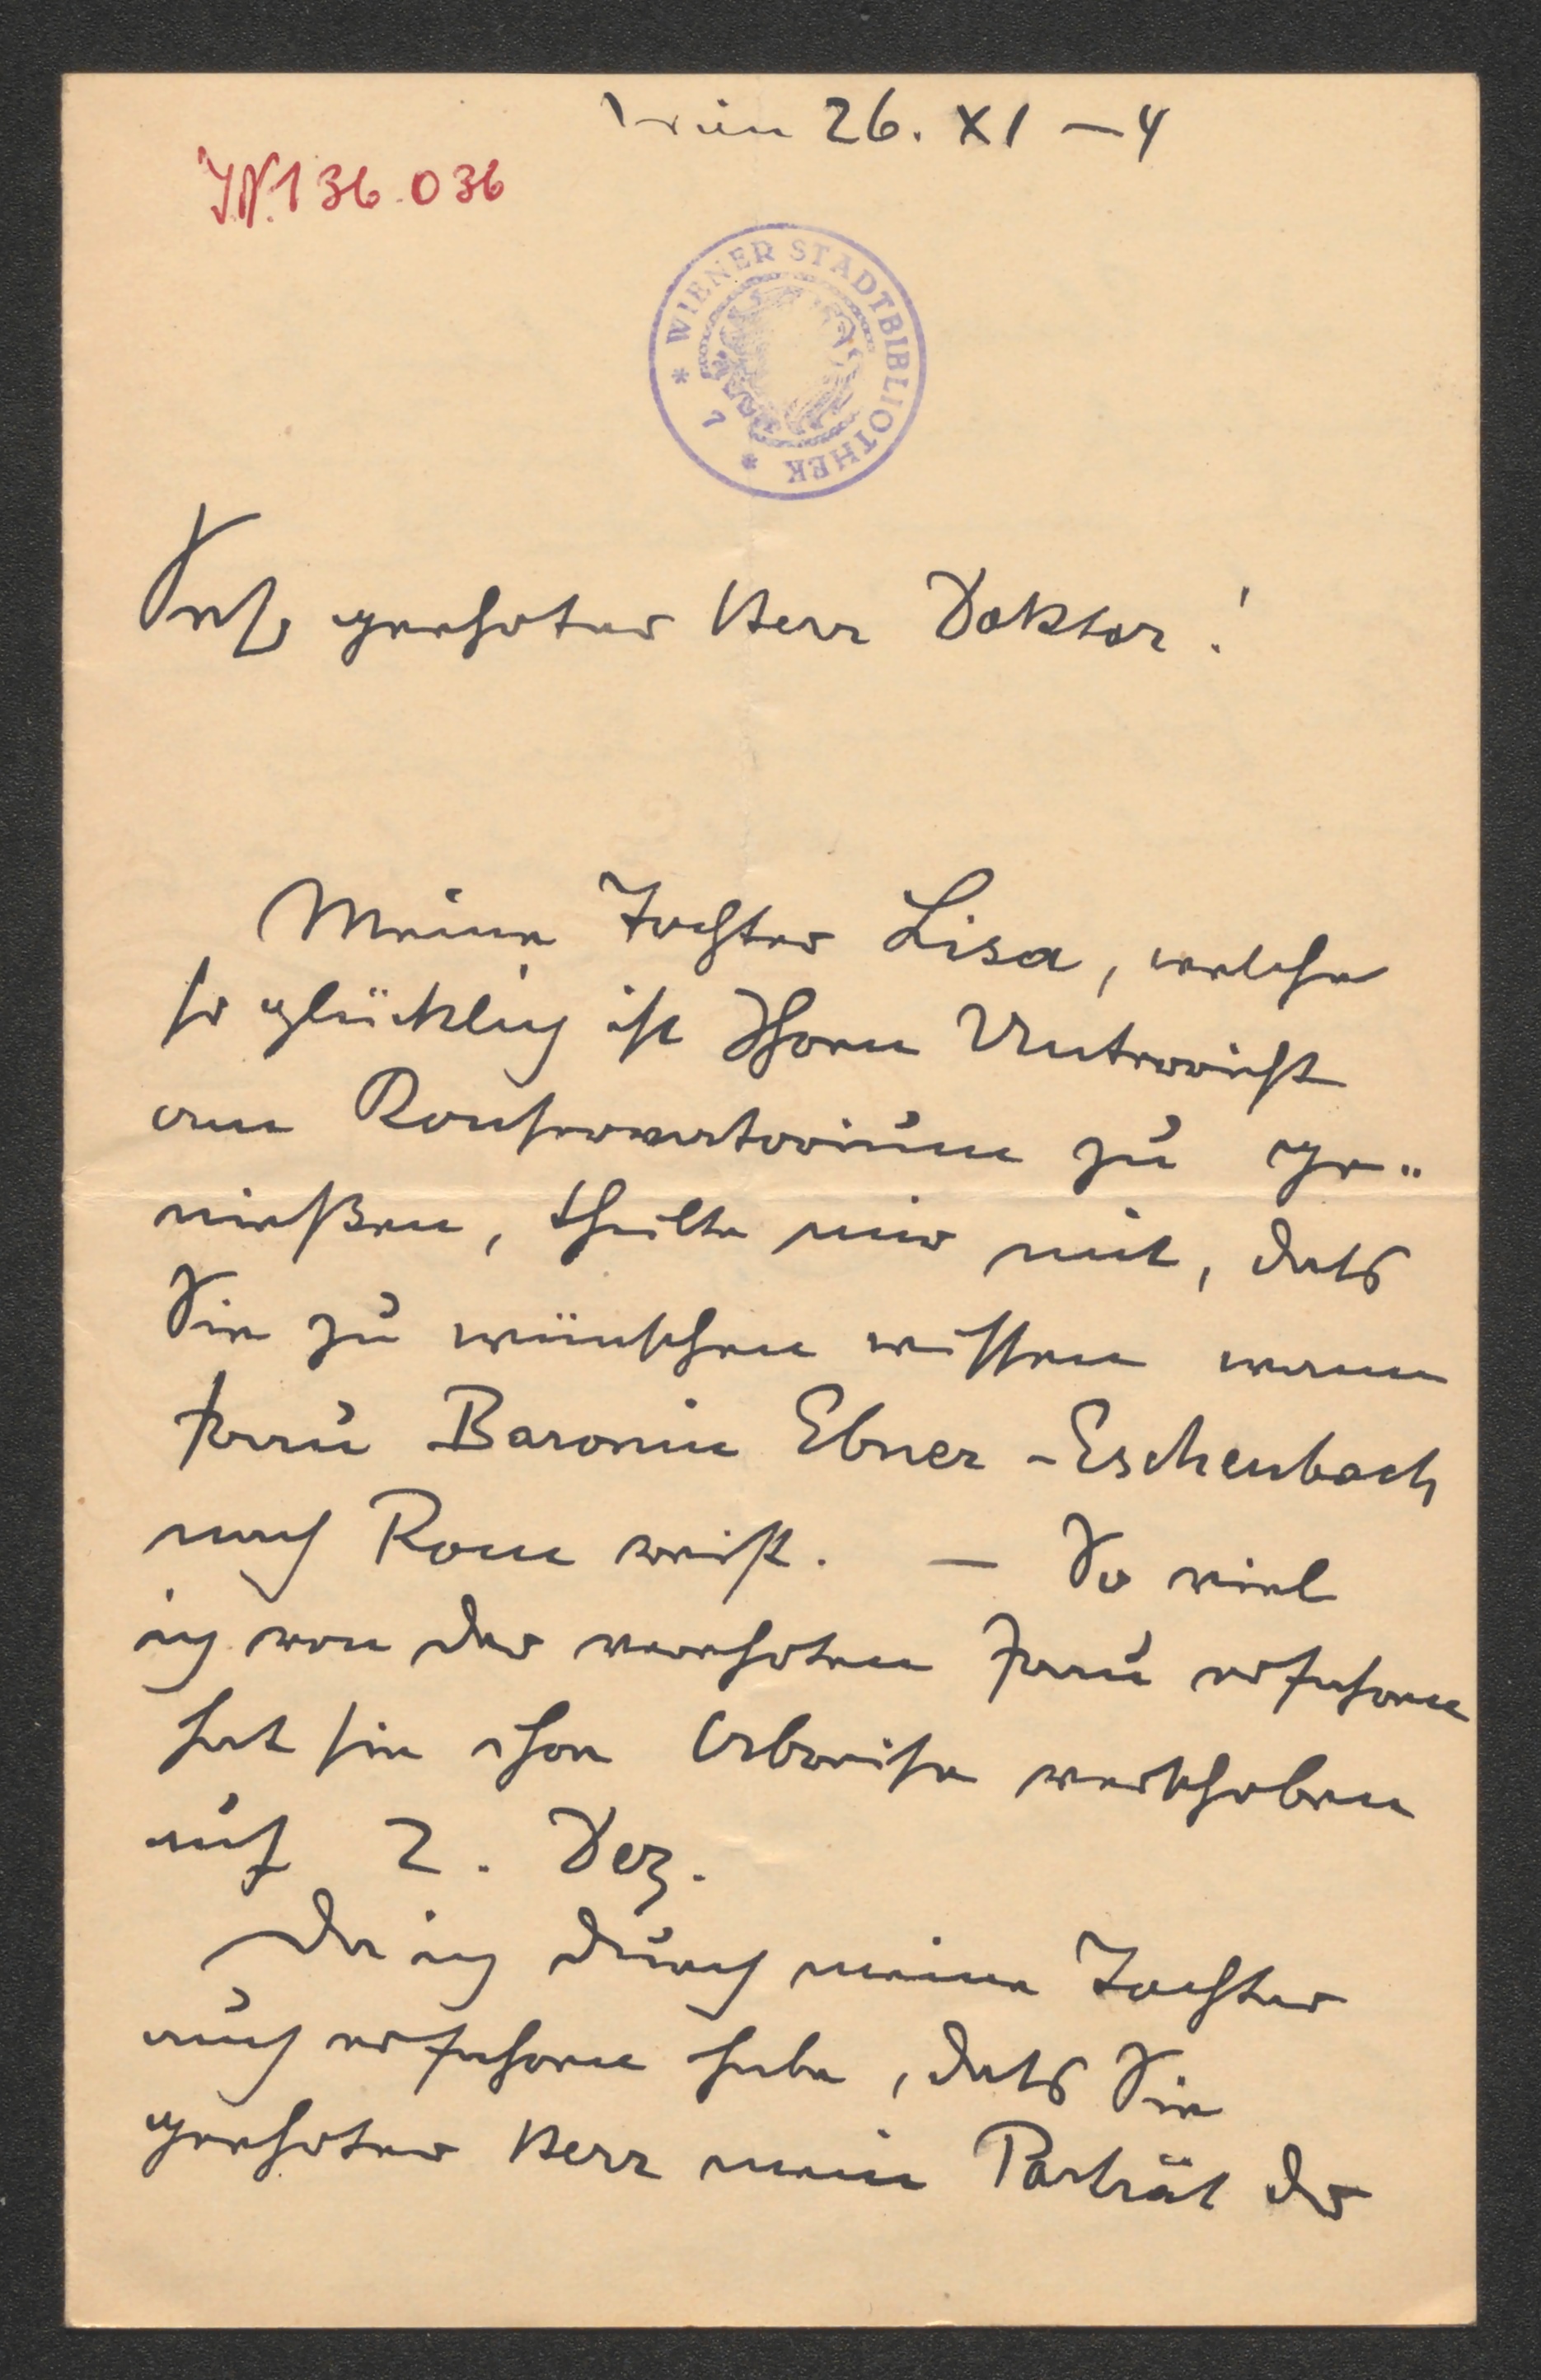 Wien 26. XI – 4
I.N. 136.036
* WIENER STADTBIBLIOTHEK * 7
Sehr geehrter Herr Doktor!
Meine Tochter Lisa, welche
so glücklich ist Ihren Unterricht
am Konservatorium zu ge„
nießen, theilte mir mit, daß
Sie zu wünschen wissen wann
Frau Baronin Ebner-Eschenbach
nach Rom reist. – So viel
ich von der verehrten Frau erfahren
hat sie ihre Abreise verschoben
auf 2. Dez.
Da ich durch meine Tochter
auch erfahren habe, daß Sie
geehrter Herr mein Porträt der